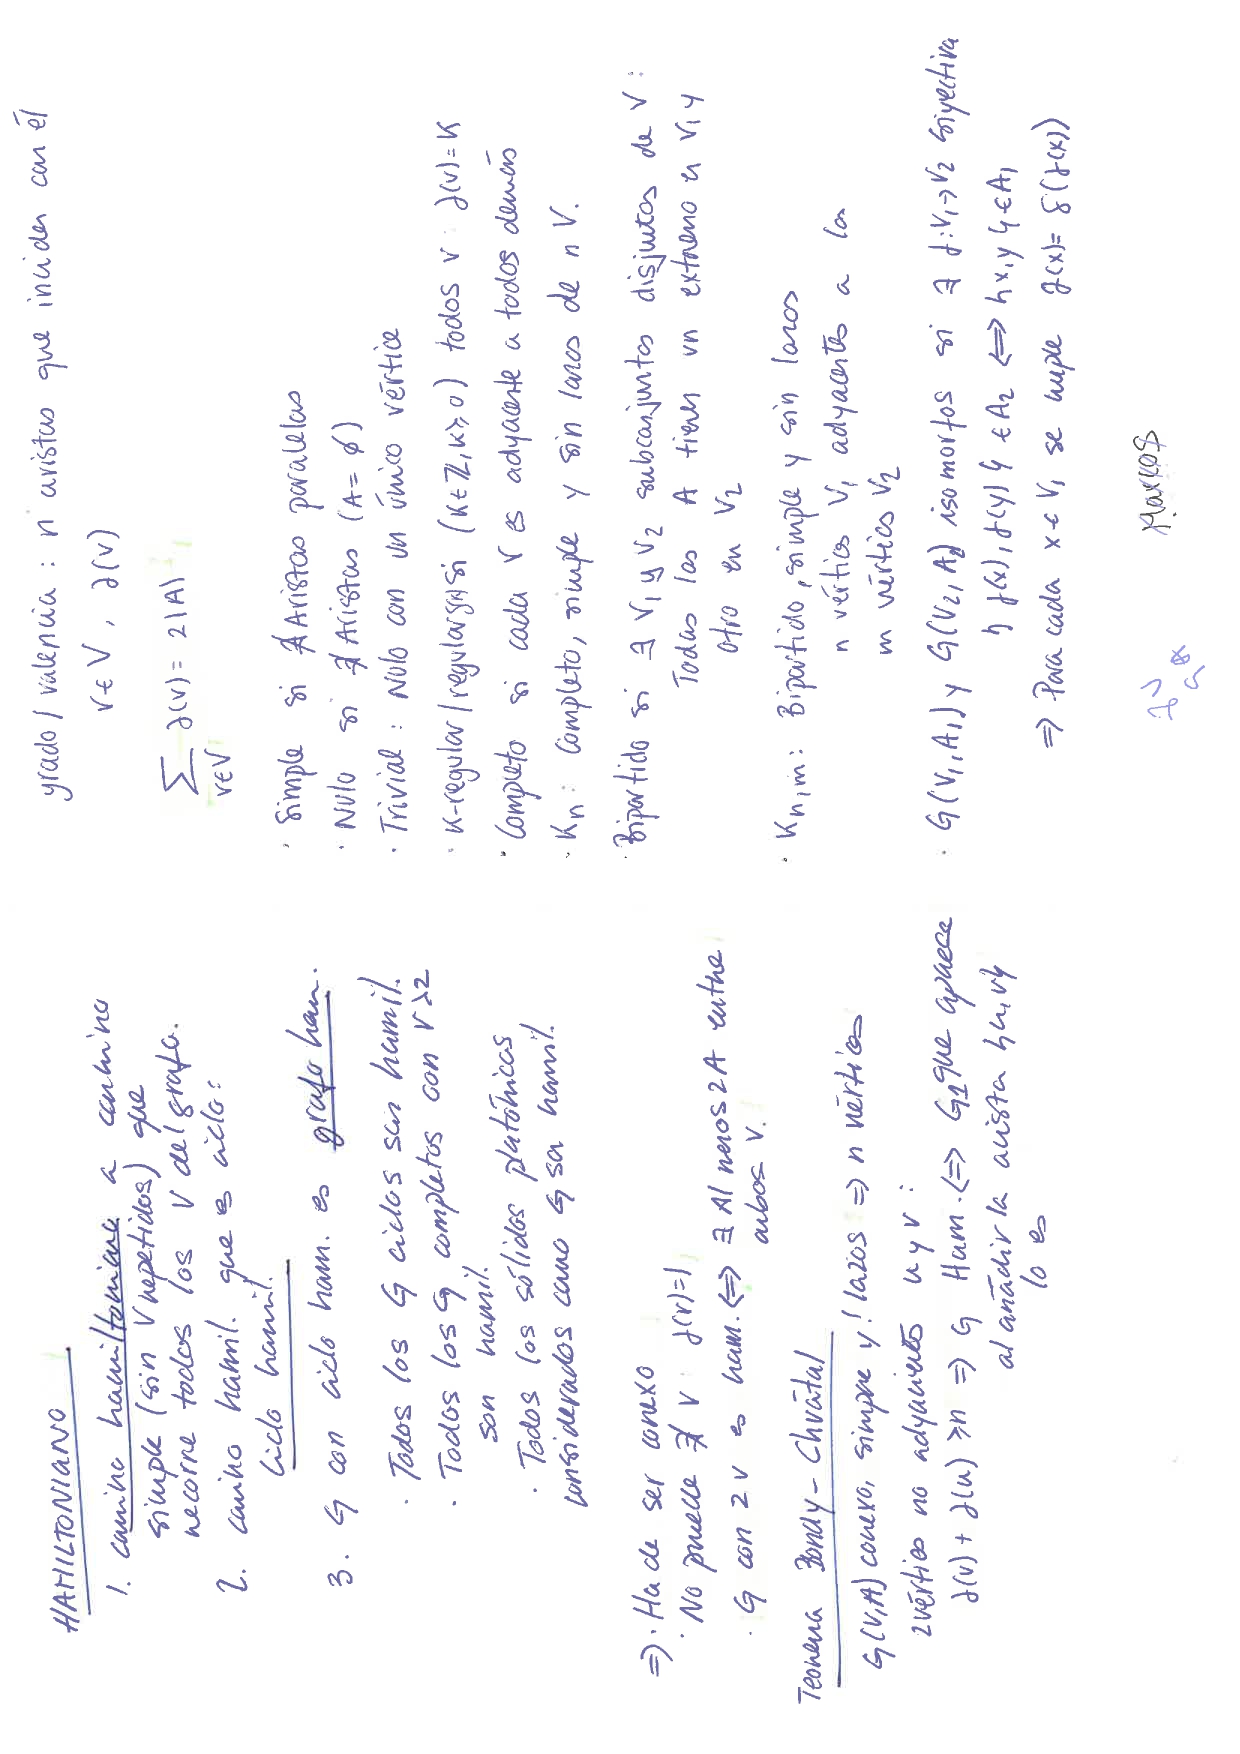 HAMILTONIANO
1. camino hamiltoniano a camino
simple (sin V repetidos) que
recorre todos los V del grafo.
2. camino hamil. que es ciclo:
ciclo hamil.
3. G con ciclo ham. es grafo ham.
· Todos los G ciclos son hamil.
· Todos los G completos con V>2
son hamil.
· Todos los sólidos platónicos
considerados como G son hamil.
⇒ · Ha de ser conexo
· No puede ∄ V : ∂(v)=1
· G con 2 v es ham. ⇔ ∃ Al menos 2 A entre
ambos V.
Teorema Bondy-Chvátal
G(V,A) conexo, simpre y ! lazos ⇒ n vértices
2 vértices no adyacentes u y v :
∂(v) + ∂(u) ≥ n ⇒ G Ham. ⇔ G1 que aparece
al añadir la arista {u,v}
lo es
grado / valencia : nº aristas que inciden con él
v ∈ V , ∂(v)
∑ ∂(v) = 2|A|
v∈V
· Simple si ∄ Aristas paralelas
· Nulo si ∄ Aristas (A = ∅)
· Trivial : Nulo con un único vértice
· K-regular/regular si (K∈ℤ, K≥0) todos v : ∂(v) = K
· Completo si cada V es adyacente a todos demás
· Kn : Completo, simple y sin lazos de n V.
· Bipartido si ∃ V1 y V2 subconjuntos disjuntos de V :
Todas las A tienen un extremo en V1 y
otro en V2
· Kn,m : Bipartido, simple y sin lazos
n vértices V1 adyacentes a los
m vértices V2
· G(V1, A1) y G(V2, A2) isomorfos si ∃ f: V1→V2 biyectiva
{ f(x), f(y) } ∈ A2 ⇔ {x, y} ∈ A1
⇒ Para cada x ∈ V1 se cumple ∂(x) = δ(f(x))
Marcos